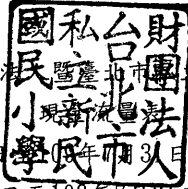 財團法人
台北市
私立新民
國民小學
暨臺北市
現 流量表
年 月3 日